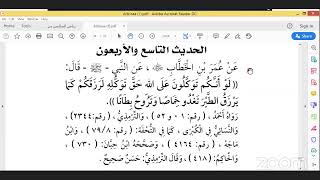 الحديث التاسع والأربعون
عَنْ عُمَرَ بْنِ الْخَطَّابِ ﷺ، عَنِ النَّبِيِّ - ﷺ - قَالَ:
((لَوْ أَنَّكُمْ تَوَكَّلُونَ عَلَى اللهِ حَقَّ تَوَكُّلِهِ لَرَزَقَكُمْ كَمَا
يَرْزُقُ الطَّيْرَ تَغْدُو خِمَاصًا وَتَرُوحُ بِطَانًا))
رَوَاهُ أَحْمَدُ، ( ٠١ و ٥٢ )، وَالتِّرْمِذِيُّ، ( رقم: ٢٣٤٤)،
وَالنَّسَائِيُّ فِي الْكُبْرَى، كَمَا فِي التُّحْفَةِ: ( رقم: ٧٩/٨ )، وَابْنُ
مَاجَهْ، ( رقم: ٤١٦٤ )، وَصَحَّحَهُ ابْنُ حِبَّانَ: ( ٧٣٠ )،
وَالْحَاكِمُ: ( ٤١٨)، وَقَالَ التِّرْمِذِيُّ: حَسَنٌ صَحِيحٌ.
zoom